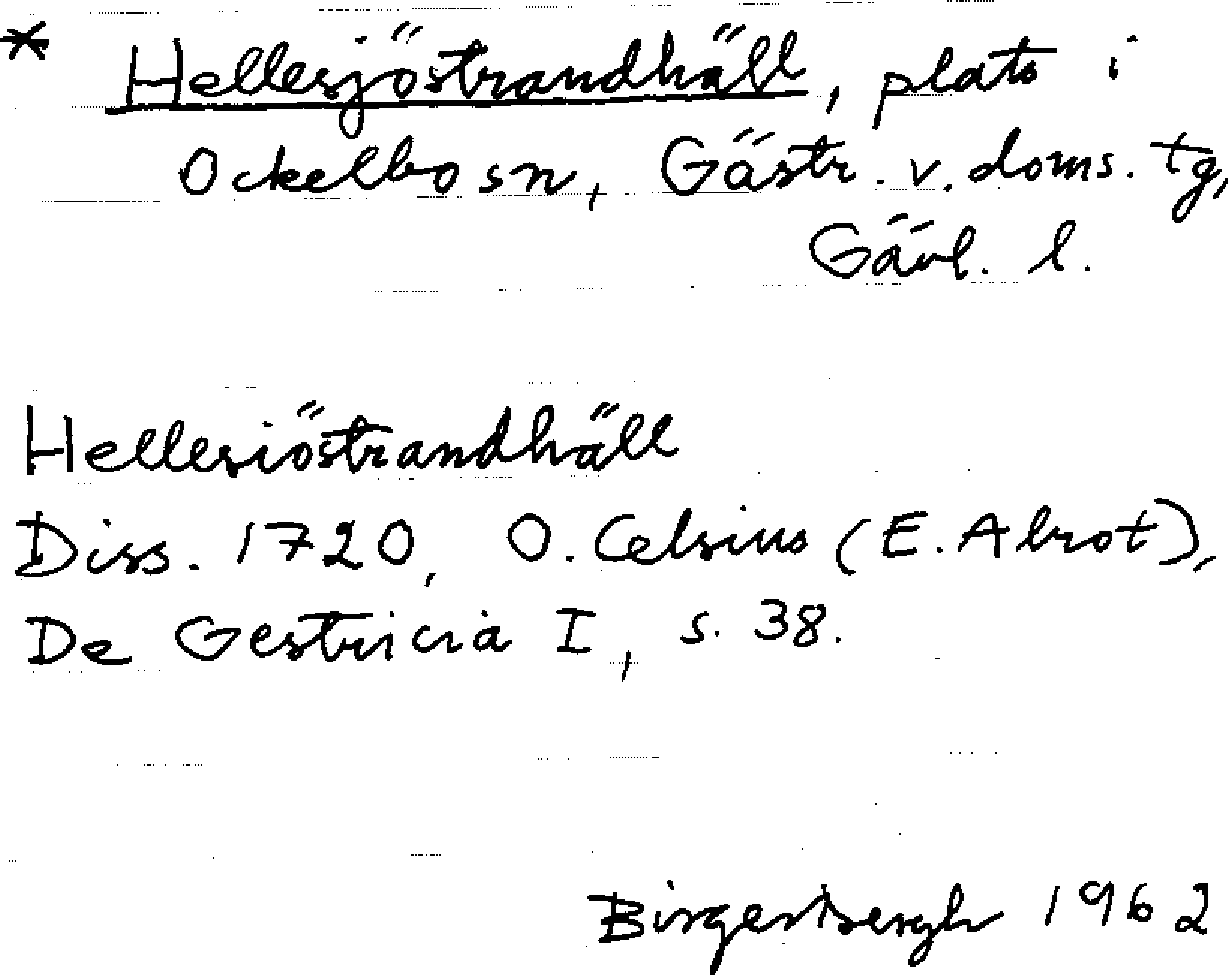 * Hellesjöstrandhäll, plats i
Ockelbo sn, Gästr. v. doms. tg,
Gävl. l.
Hellesiöstrandhäll
Diss. 1720, O. Celsius (E. Abrot),
De Gestricia I, s. 38.
Birger Bergh 1962